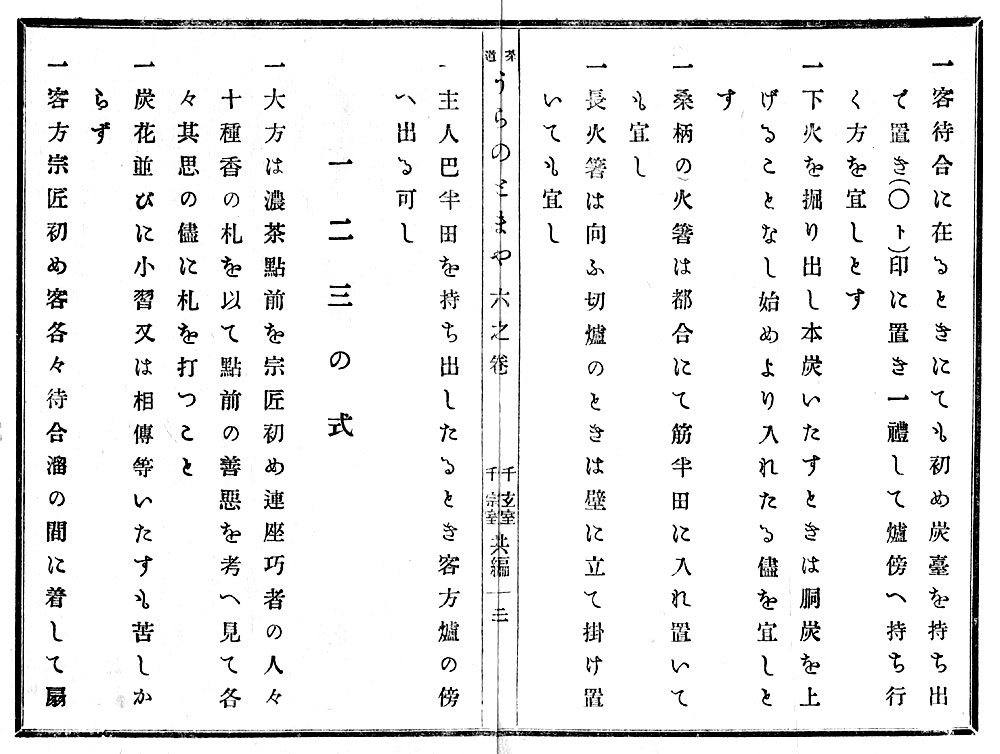 一客待合に在るときにても初め炭臺を持ち出
で置き(〇ト)印に置き一禮して爐傍へ持ち行
く方を宜しとす
一下火を掘り出し本炭いたすときは胴炭を上
げることなし始めより入れたる儘を宜しと
す
一桑柄の火箸は都合にて筋半田に入れ置いて
も宜し
一長火箸は向ふ切爐のときは壁に立て掛け置
いても宜し
茶道 うらのとまや六之卷 千玄室 千宗室 共編 一三
一主人巴半田を持ち出したるとき客方爐の傍
へ出る可し
一二三の式
一大方は濃茶點前を宗匠初め連座巧者の人々
十種香の札を以て點前の善悪を考へ見て各
々其思の儘に札を打つこと
一炭花並びに小習又は相傳等いたすも苦しか
らず
一客方宗匠初め客各々待合溜の間に着して扇